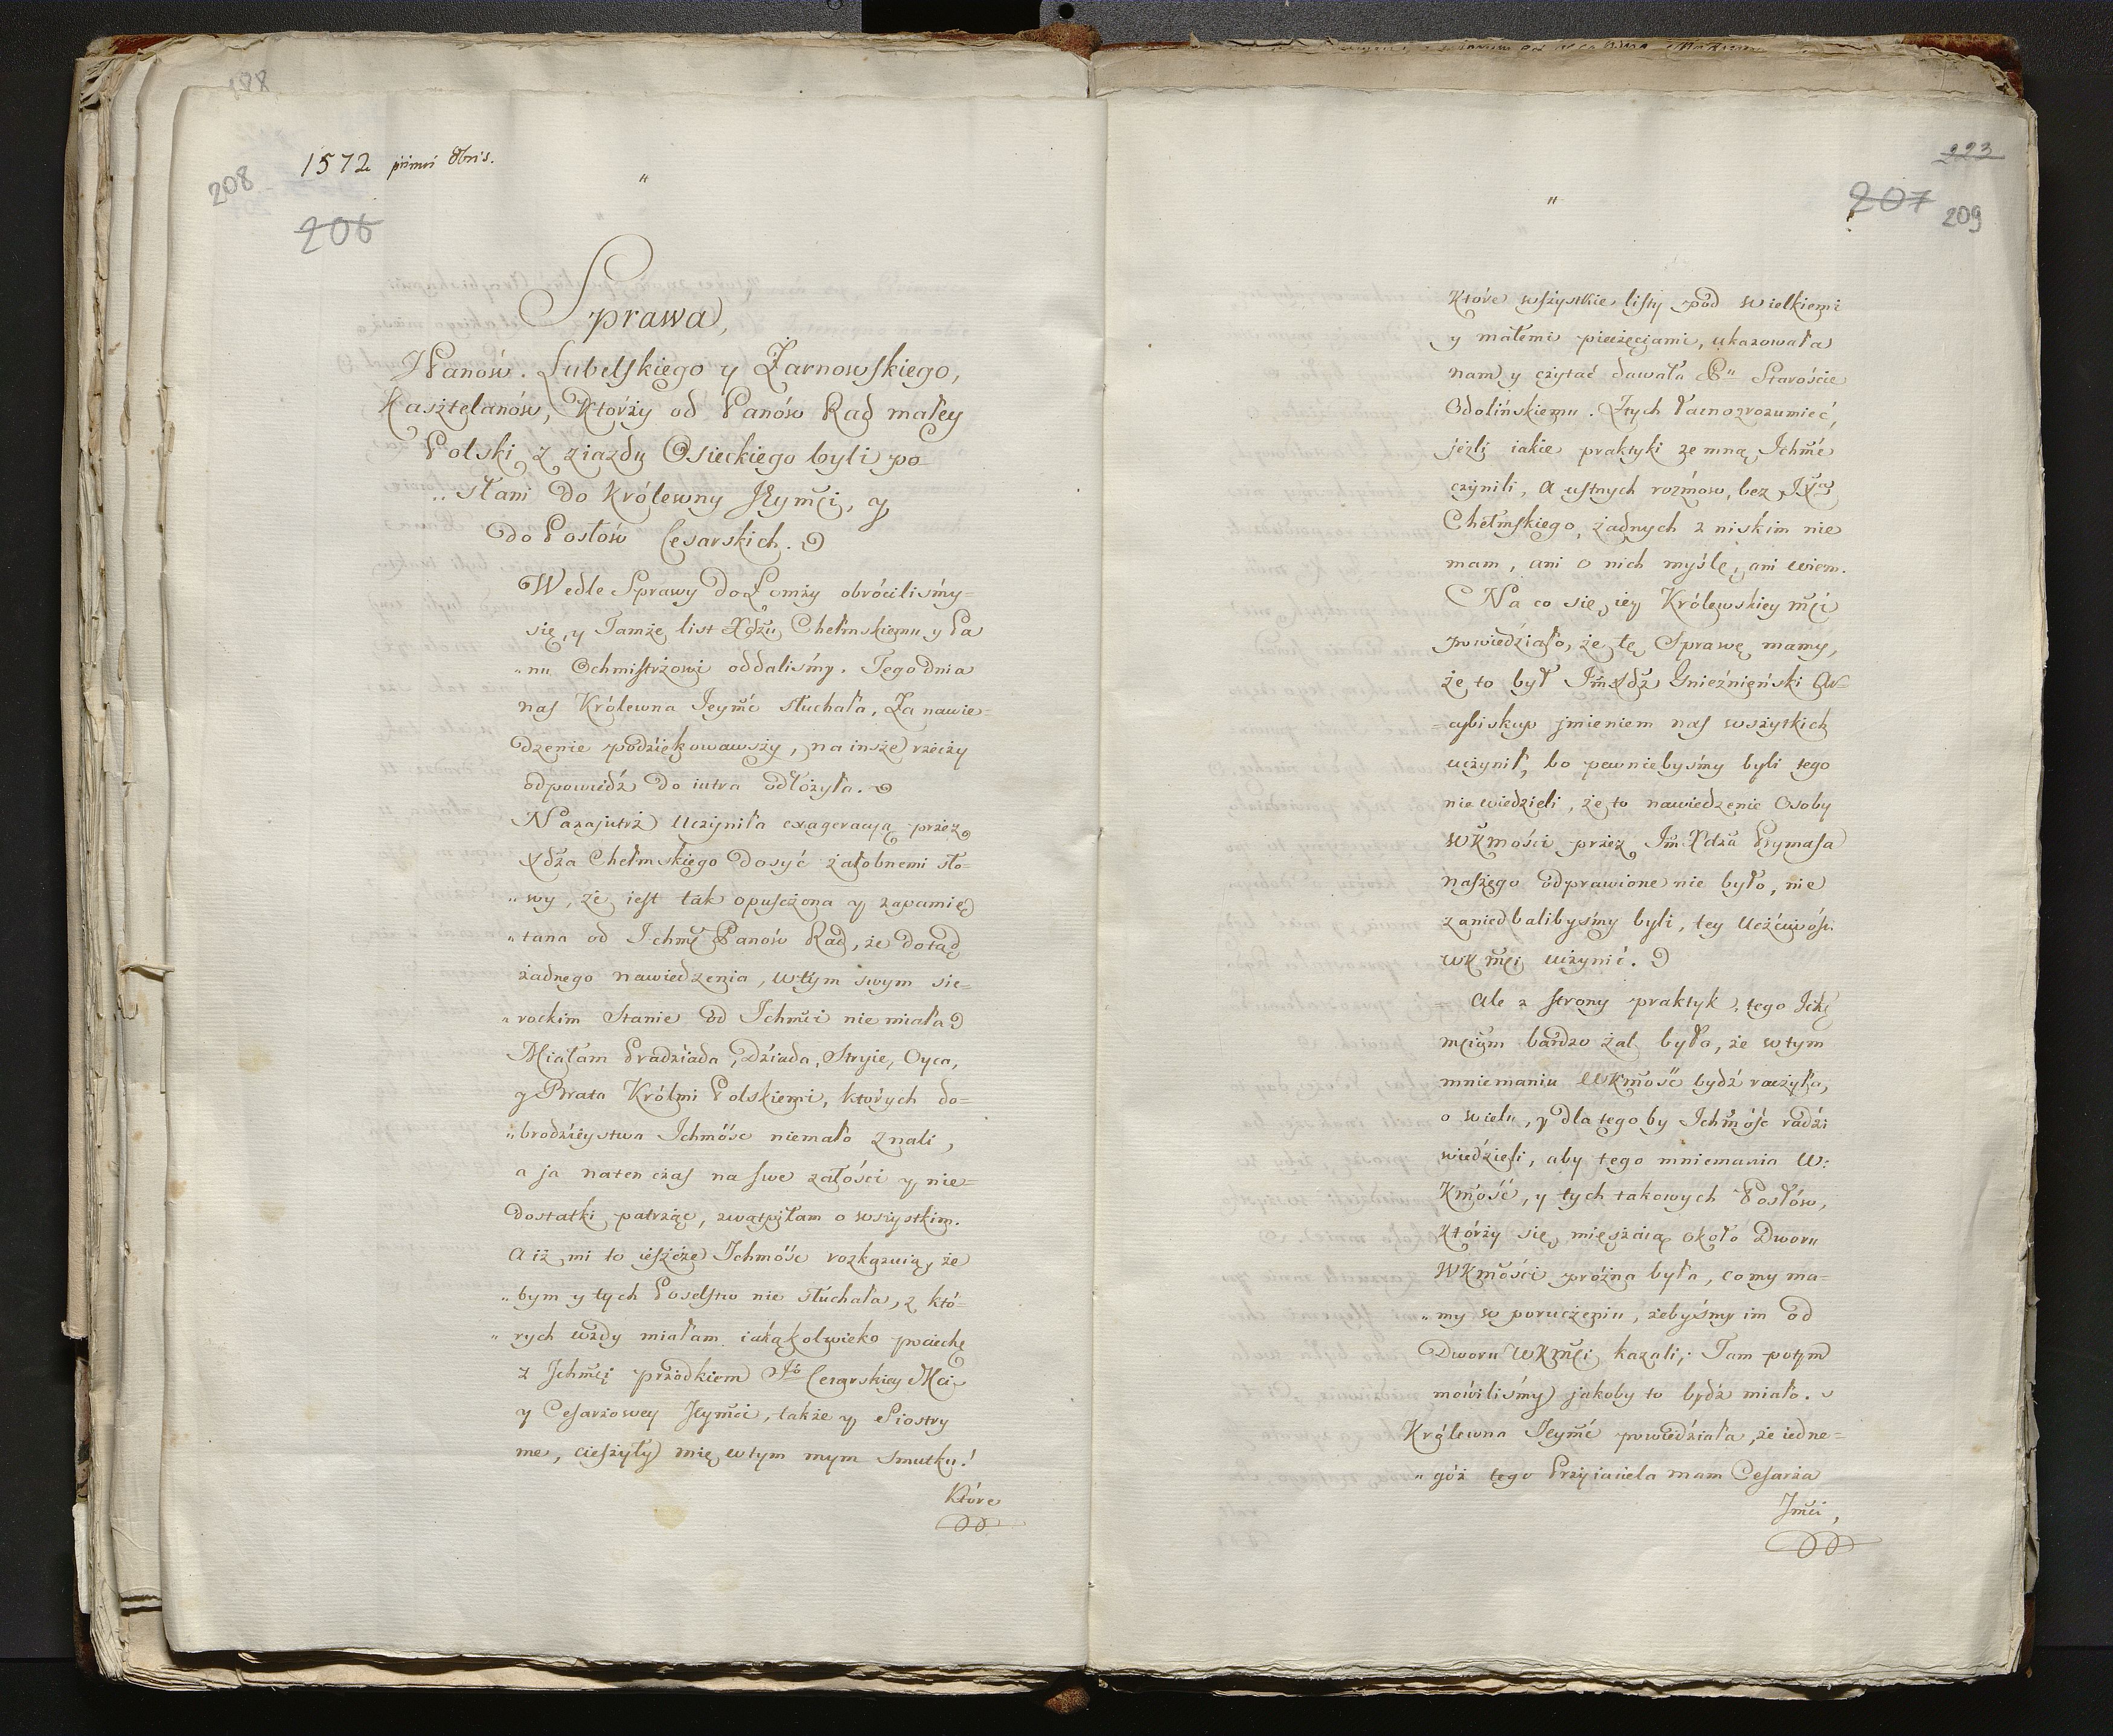 188
1572 primi 8bris.
208
206
Sprawa,
JPanów. Lubelskiego y Żarnowskiego,
Kasztelanów, Którzy od Panów Rad małey
Polski z ziazdu Osieckiego byli po-
„słani do Królewny JEymci, y
do Posłów Cesarskich.
Wedle Sprawy do Łomży obrócilismy-
się, y Tamże list Xdzu Chełmskiemu y Pa
„nu Ochmistrzowi oddalismy. Tego dnia
nas Królewna Jeymć słuchała, Za nawie-
dzenie podziękowawszy, na insze rzeczy
odpowiedź do iutra odłożyła.
Nazajutrz Uczyniła exageracyą przez
Xdza Chełmskiego dosyć żałobnemi sło-
„wy, że iest tak opuszczona y zapamię
„tana od Ichmć Panów Rad, że dotąd
żadnego nawiedzenia, w tym swym sie-
„rockim Stanie od Ichmci nie miała
Miałam Pradziada, Dziada, Stryie, Oyca,
y Brata Królmi Polskiemi, których do-
„brodzieystwa Ichmośc niemało znali,
a ja naten czas na swe żałości y nie-
dostatki patrząc, zwątpiłam o wszystkim.
A iż mi to ieszcze Ichmośc rozkazuią, że
„bym y tych Poselstw nie słuchała, z któ-
„rych wżdy miałam iakąkolwieko pociechę
z Ichmci przodkiem Cesarskiey Mci
y Cesarzowey Jeymci, także y Siostry
me, cieszyły mię w tym mym smutku!
Które
223
207
209
Które wszystkie listy pod wielkiemi
y małemi pieczęciami, ukazowała
nam y czytać dawała Pu Staroście
Odolińskiemu. Z tych łacno zrozumieć,
jeżli iakie praktyki ze mną Ichmć
czynili, A ustnych rozmow, bez JXa
Chełmskiego, żadnych z niskim nie
mam, ani o nich myślę, ani wiem.
Na co się iey Królewskiey mci
powiedziało, że tę Sprawę mamy,
że to był Jm Xdz Gnieźnieński Ar-
cybiskup jmieniem nas wszytkich
uczynił, bo pewniebysmy byli tego
nie wiedzieli, że to nawiedzenie Osoby
WKmości przez Jm Xdza Prymasa
naszego odprawione nie było, nie
zaniedbalibysmy byli, tey Uczciwości
WKmci uczynić.
Ale z strony praktyk, tego Ich
mciom bardzo żal było, że w tym
mniemaniu WKmość bydź raczyła,
o wielu, y dla tego by Ichmość radzi
wiedzieli, aby tego mniemania W:
Kmość, y tych takowych Posłów,
Którzy się mieszaią około Dworu
WKmości próżna była, co my ma-
„my w poruczeniu, żebysmy im od
Dworu WKmci kazali; Tam potym
mówilismy jakoby to bydź miało.
Królewna Jeymć powiedziała, że iedne-
„góż tego Przyiaciela mam Cesarza
Jmci,